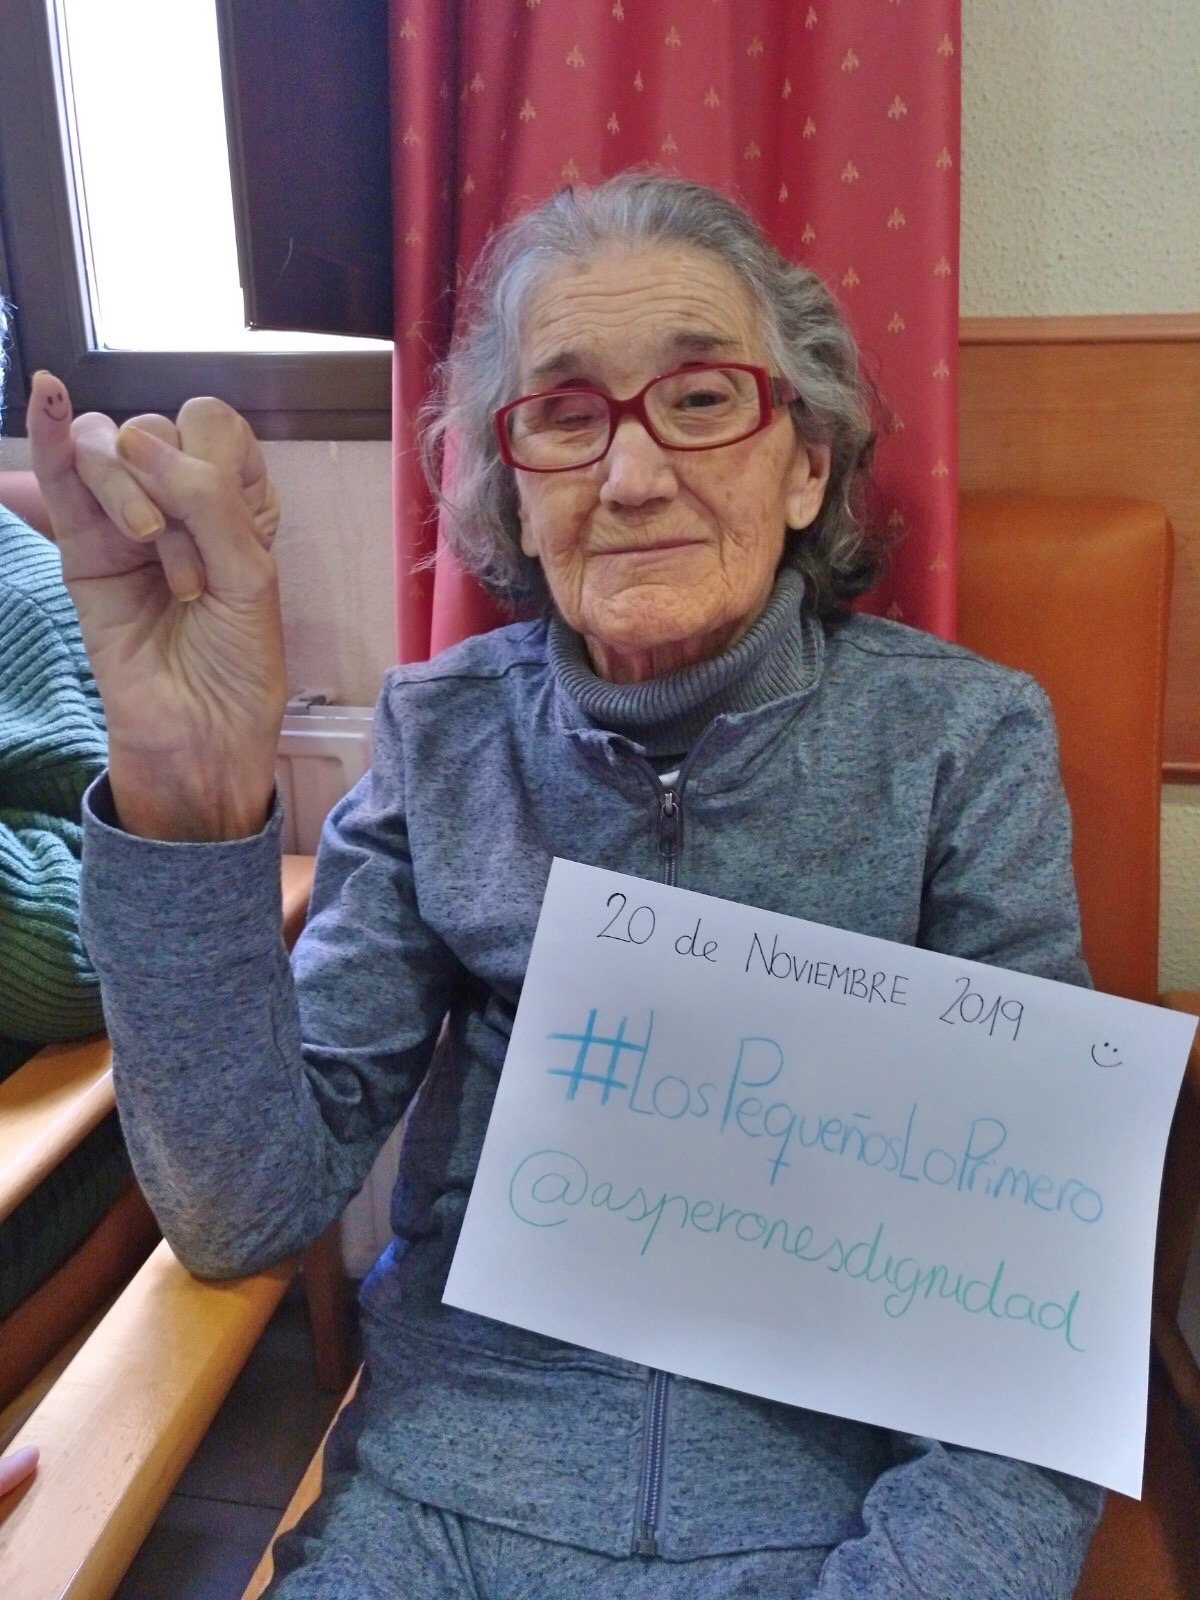 20 de NOVIEMBRE 2019
#LosPequeñosLoPrimero
@asperonesdignidad